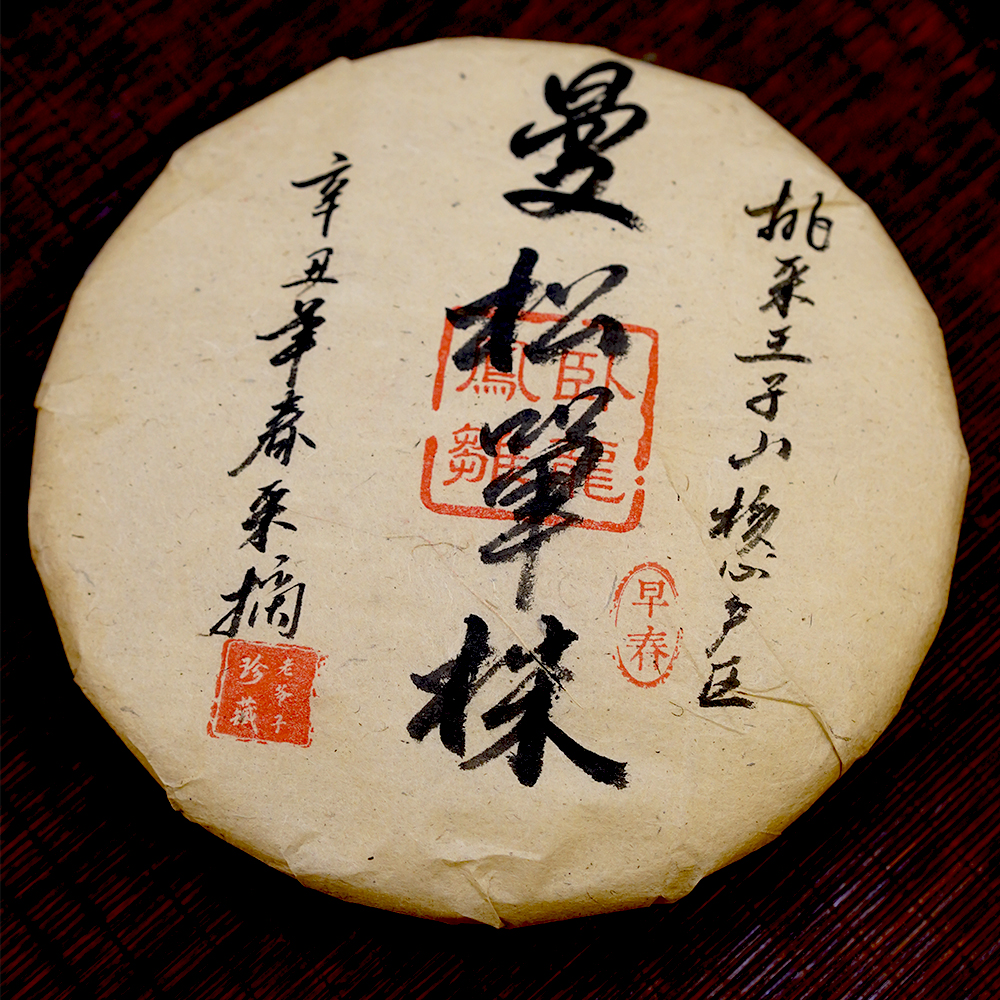 挑采王子山核心产区
曼松單株
辛丑年春采摘
卧龍
鳳雛
早春
老爷子
珍藏